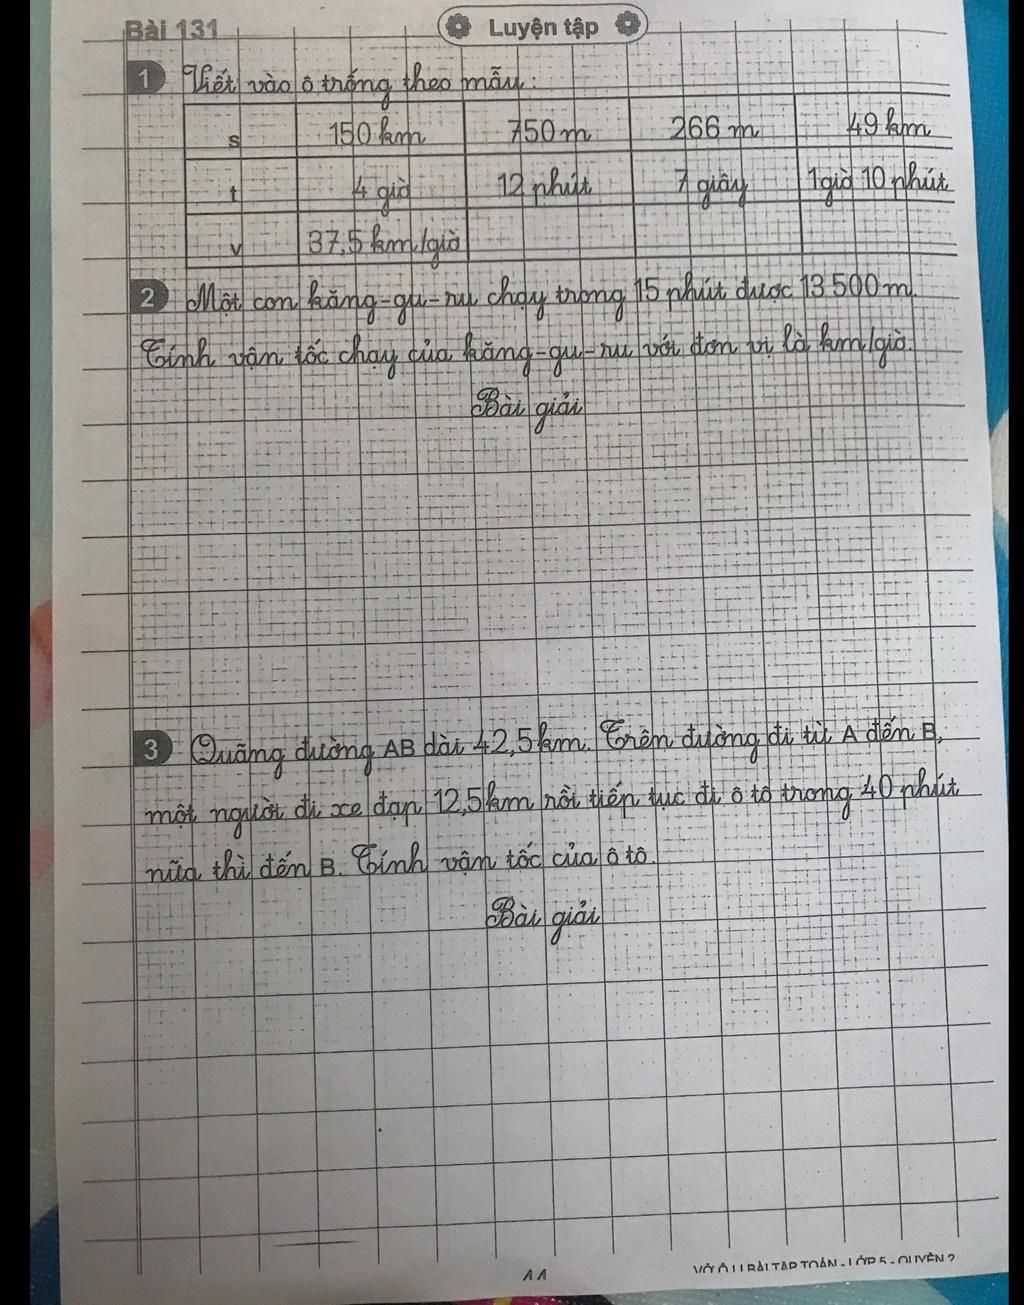 Bài 131
Luyện tập
1 Viết vào ô trống theo mẫu:
s 150 km 750 m 266 m 49 km
t 4 giờ 12 phút 7 giây 1 giờ 10 phút
v 37,5 km/giờ
2 Một con kăng-gu-ru chạy trong 15 phút được 13 500 m.
Tính vận tốc chạy của kăng-gu-ru với đơn vị là km/giờ.
Bài giải
3 Quãng đường AB dài 42,5 km. Trên đường đi từ A đến B,
một người đi xe đạp 12,5 km rồi tiếp tục đi ô tô trong 40 phút
nữa thì đến B. Tính vận tốc của ô tô.
Bài giải
VỞ Ô LI BÀI TẬP TOÁN - LỚP 5 - QUYỂN 2